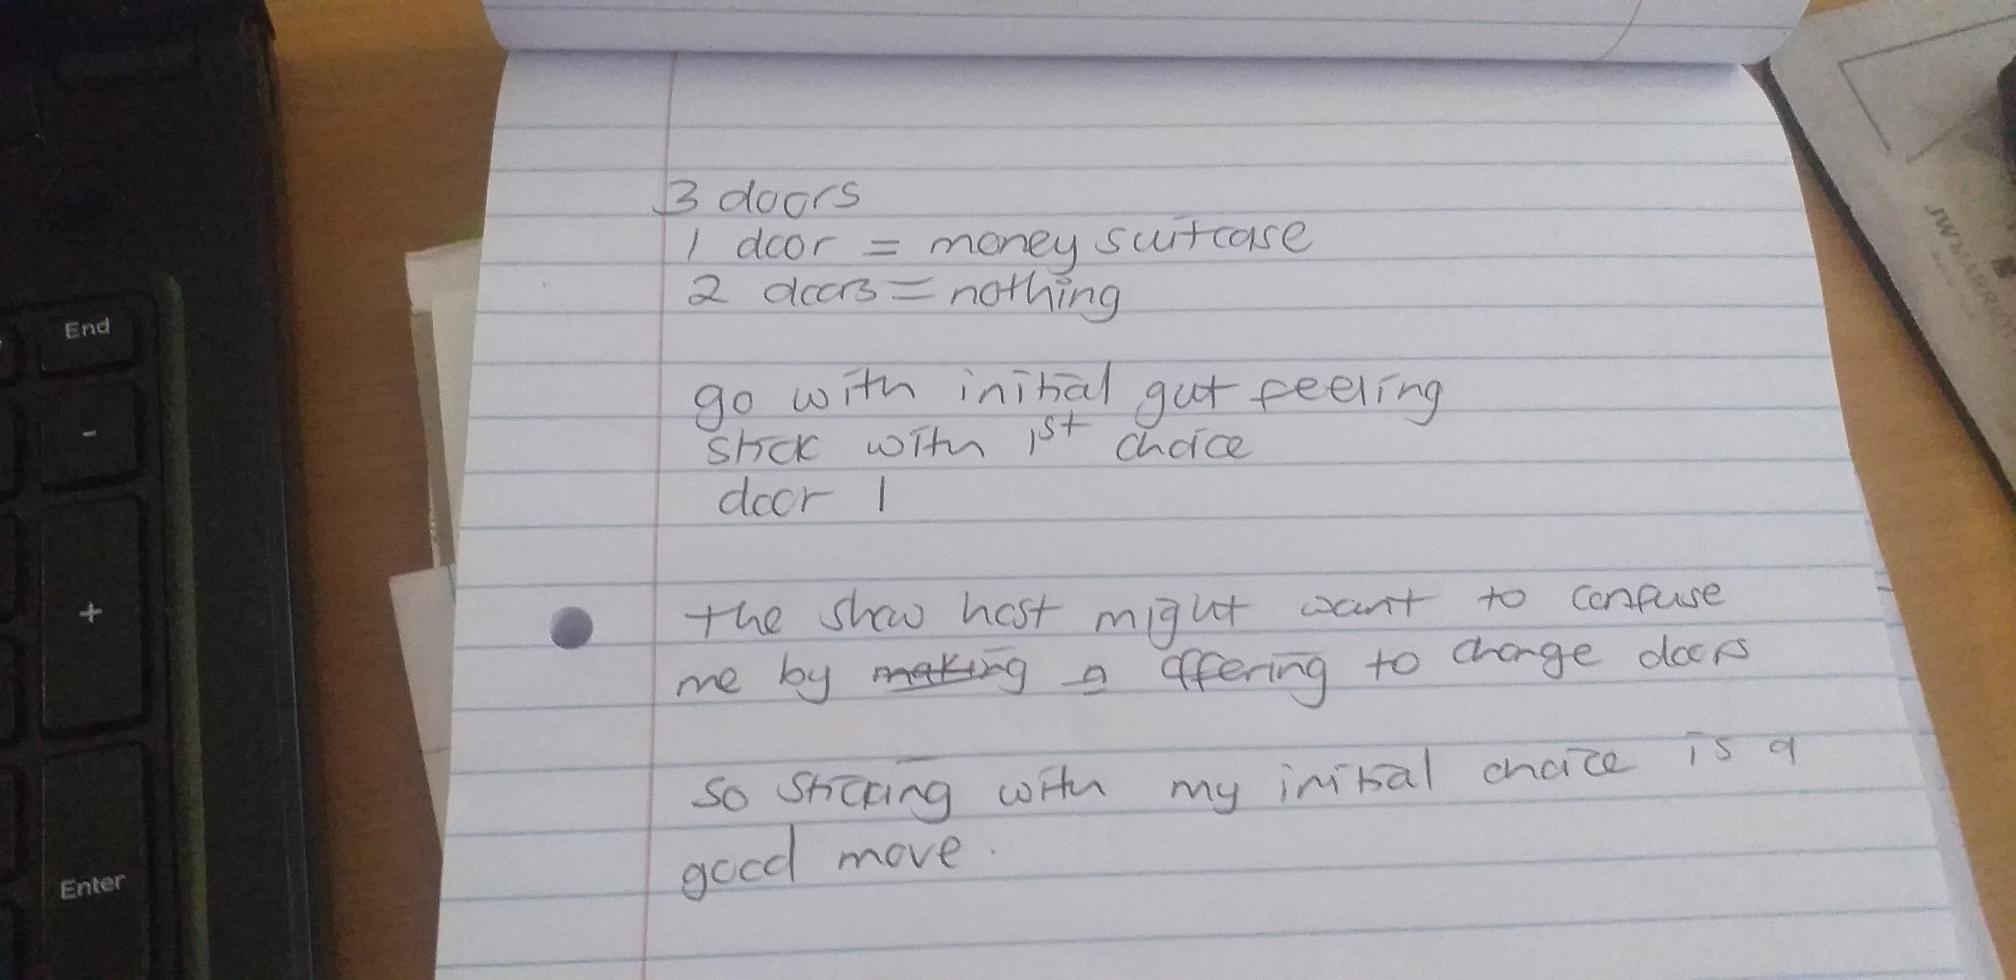 3 doors
1 door = money suitcase
2 doors = nothing
go with initial gut feeling
stick with 1st choice
door 1
the show host might want to confuse
me by making a offering to change doors
so sticking with my initial choice is a
good move.
End
-
+
Enter